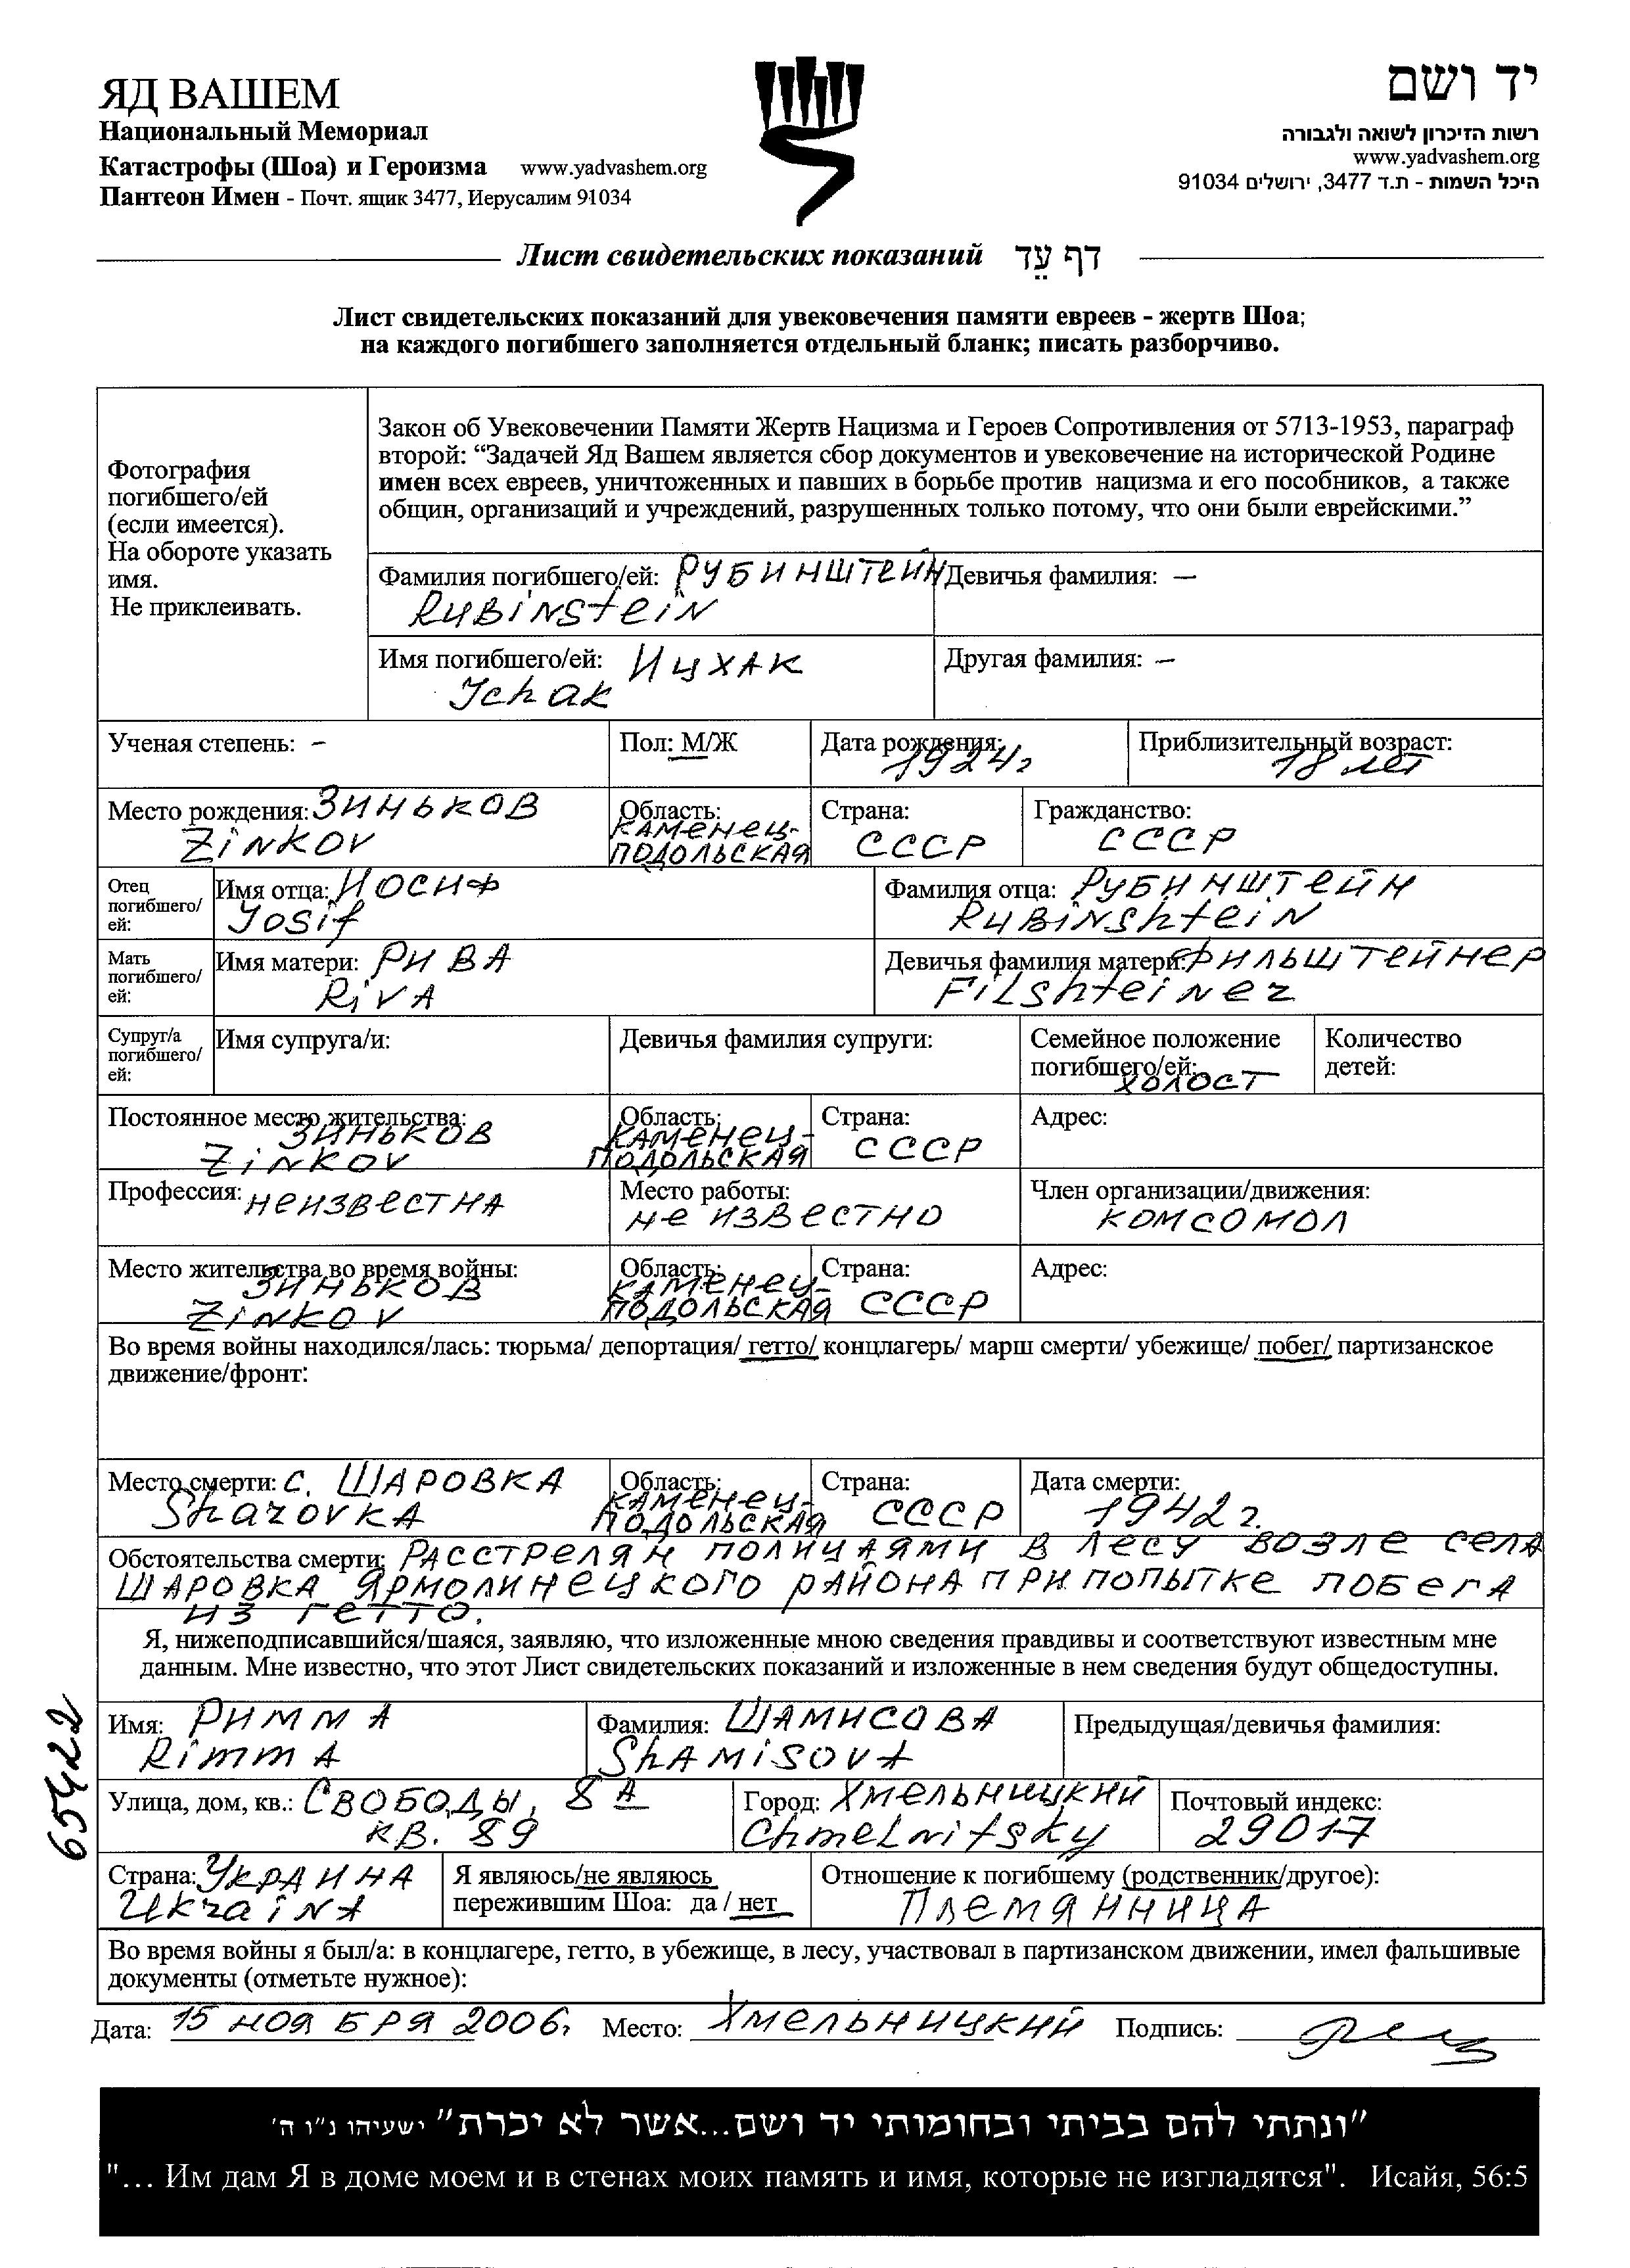 ЯД ВАШЕМ
Национальный Мемориал
Катастрофы (Шоа) и Героизма www.yadvashem.org
Пантеон Имен - Почт. ящик 3477, Иерусалим 91034
יד ושם
רשות הזיכרון לשואה ולגבורה
www.yadvashem.org
היכל השמות - ת.ד 3477, ירושלים 91034
Лист свидетельских показаний דף עֵד
Лист свидетельских показаний для увековечения памяти евреев - жертв Шоа;
на каждого погибшего заполняется отдельный бланк; писать разборчиво.
Фотография
погибшего/ей
(если имеется).
На обороте указать
имя.
Не приклеивать.
Закон об Увековечении Памяти Жертв Нацизма и Героев Сопротивления от 5713-1953, параграф
второй: “Задачей Яд Вашем является сбор документов и увековечение на исторической Родине
имен всех евреев, уничтоженных и павших в борьбе против нацизма и его пособников, а также
общин, организаций и учреждений, разрушенных только потому, что они были еврейскими.”
Фамилия погибшего/ей: РУБИНШТЕЙН Девичья фамилия: —
Rubinstein
Имя погибшего/ей: Ицхак Другая фамилия: —
Ichak
Ученая степень: - Пол: М/Ж Дата рождения: 1924г Приблизительный возраст: 18 лет
Место рождения: Зиньков Область: Каменец- Страна: Гражданство:
Zinkov Подольская СССР СССР
Отец погибшего/ей: Имя отца: Иосиф Фамилия отца: Рубинштейн
Yosif Rubinshtein
Мать погибшего/ей: Имя матери: Рива Девичья фамилия матери: Фильштейнер
Riva Filshteiner
Супруг/а погибшего/ей: Имя супруга/и: Девичья фамилия супруги: Семейное положение Количество
погибшего/ей: холост детей:
Постоянное место жительства: Зиньков Область: Каменец- Страна: Адрес:
Zinkov Подольская СССР
Профессия: неизвестна Место работы: не известно Член организации/движения: комсомол
Место жительства во время войны: Зиньков Область: Каменец- Страна: Адрес:
Zinkov Подольская СССР
Во время войны находился/лась: тюрьма/ депортация/ гетто/ концлагерь/ марш смерти/ убежище/ побег/ партизанское
движение/фронт:
Место смерти: с. Шаровка Область: Каменец- Страна: Дата смерти:
Sharovka Подольская СССР 1942 г.
Обстоятельства смерти: Расстрелян полицаями в лесу возле села
Шаровка Ярмолинецкого района при попытке побега
из гетто.
Я, нижеподписавшийся/шаяся, заявляю, что изложенные мною сведения правдивы и соответствуют известным мне
данным. Мне известно, что этот Лист свидетельских показаний и изложенные в нем сведения будут общедоступны.
65422
Имя: Римма Фамилия: Шамисова Предыдущая/девичья фамилия:
Rimma Shamisova
Улица, дом, кв.: Свободы, 8 А Город: Хмельницкий Почтовый индекс:
кв. 89 Chmelnitsky 29017
Страна: Украина Я являюсь/не являюсь Отношение к погибшему (родственник/другое):
Ukraina пережившим Шоа: да / нет Племянница
Во время войны я был/а: в концлагере, гетто, в убежище, в лесу, участвовал в партизанском движении, имел фальшивые
документы (отметьте нужное):
Дата: 15 ноября 2006г Место: Хмельницкий Подпись:
"ונתתי להם בביתי ובחומותי יד ושם...אשר לא יכרת" ישעיהו נ"ו ה'
"... Им дам Я в доме моем и в стенах моих память и имя, которые не изгладятся". Исайя, 56:5